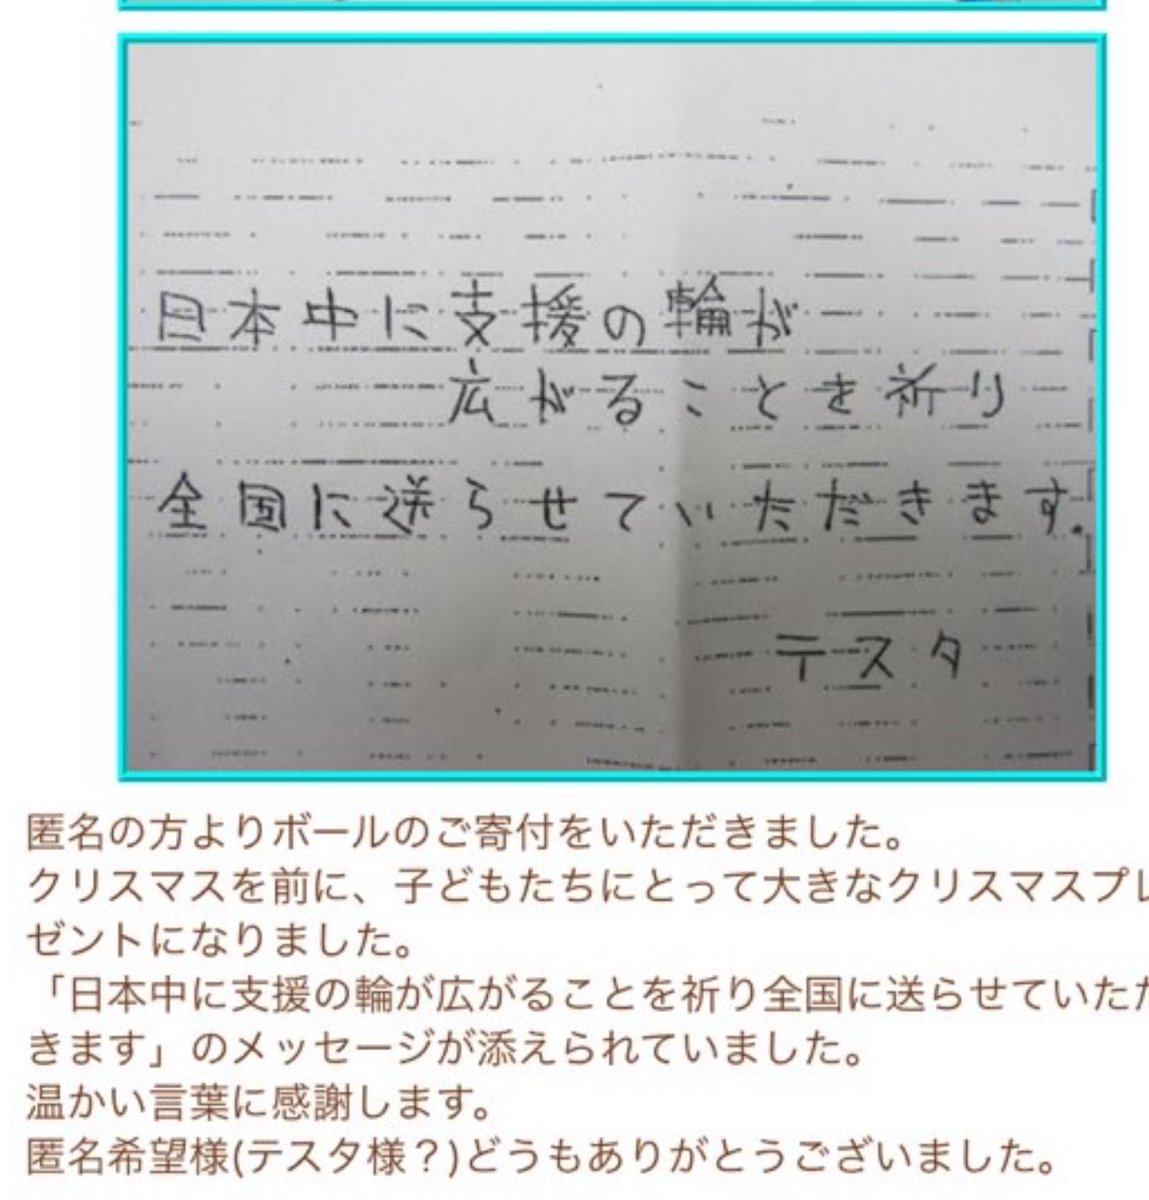 日本中に支援の輪が
広がることを祈り
全国に送らせていただきます。
テスタ
匿名の方よりボールのご寄付をいただきました。
クリスマスを前に、子どもたちにとって大きなクリスマスプレ
ゼントになりました。
「日本中に支援の輪が広がることを祈り全国に送らせていただ
きます」のメッセージが添えられていました。
温かい言葉に感謝します。
匿名希望様(テスタ様？)どうもありがとうございました。